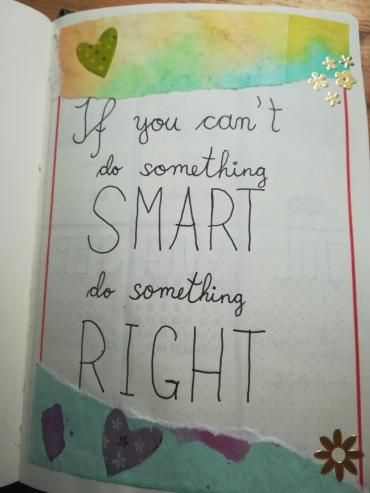 If you can't
do something
SMART
do something
RIGHT